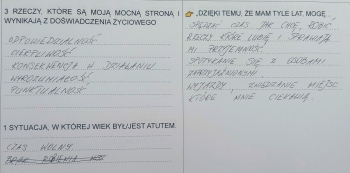 3 RZECZY, KTÓRE SĄ MOJĄ MOCNĄ STRONĄ I
WYNIKAJĄ Z DOŚWIADCZENIA ŻYCIOWEGO
ODPOWIEDZIALNOŚĆ
CIERPLIWOŚĆ
KONSEKWENCJA W DZIAŁANIU
WYROZUMIAŁOŚĆ
PUNKTUALNOŚĆ
1 SYTUACJA, W KTÓREJ WIEK BYŁ/JEST ATUTEM.
CZAS WOLNY
BRAK
👉 „DZIĘKI TEMU, ŻE MAM TYLE LAT, MOGĘ ...
SPĘDZAĆ CZAS JAK CHCĘ, ROBIĆ
RZECZY KTÓRE LUBIĘ I SPRAWIAJĄ
MI PRZYJEMNOŚĆ.
SPOTYKANIE SIĘ Z OSOBAMI
ZAPRZYJAŹNIONYMI
WYJAZDY, ZWIEDZANIE MIEJSC
KTÓRE MNIE CIEKAWIĄ.